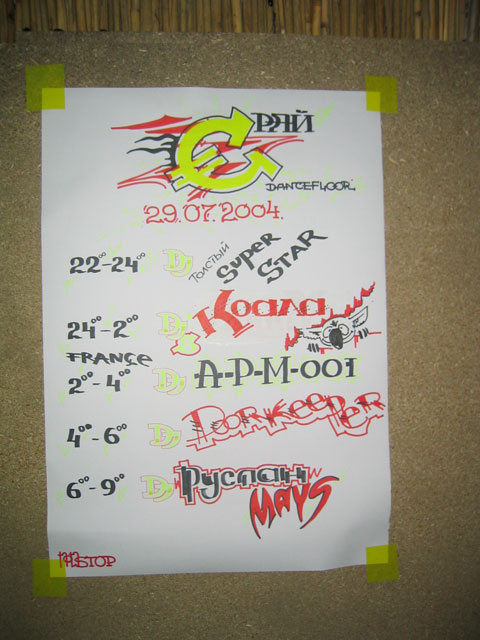 РЯЙ
DANCEFLOOR.
29.07.2004.
22⁰⁰-24⁰⁰ Dj Толстый Super STAR
24⁰⁰-2⁰⁰ Dj Коала
FRANCE
2⁰⁰-4⁰⁰ Dj A-P-M-001
4⁰⁰-6⁰⁰ Dj DORKEEPER
6⁰⁰-9⁰⁰ Dj Руслан MAYS